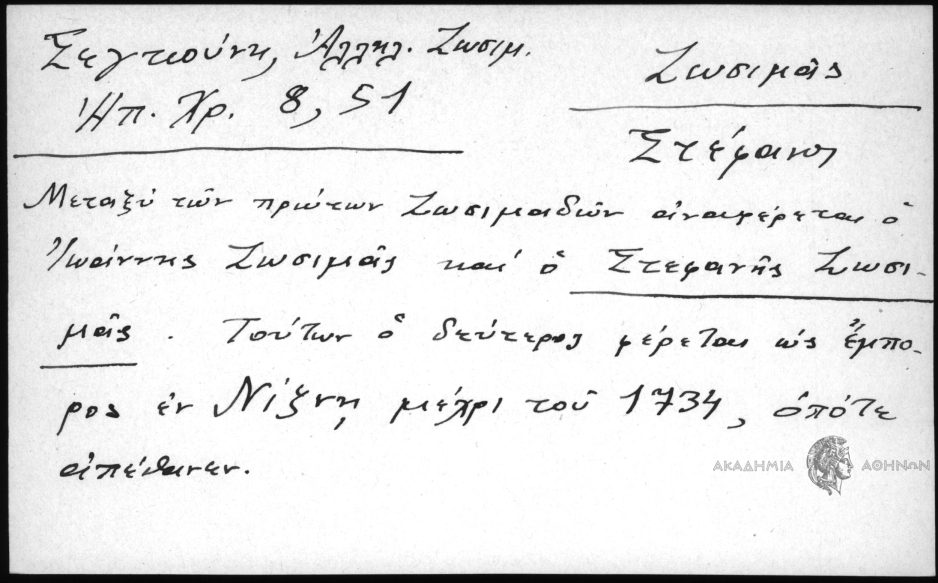 Σεγκούνη, Ἀλληλ. Ζωσιμ.
Ἠπ. Χρ. 8, 51
Ζωσιμᾶς
Στέφανος
Μεταξὺ τῶν πρώτων Ζωσιμαδῶν ἀναφέρεται ὁ
Ἰωάννης Ζωσιμᾶς καὶ ὁ Στεφανῆς Ζωσι-
μᾶς. Τούτων ὁ δεύτερος φέρεται ὡς ἔμπο-
ρος ἐν Νίζνῃ μέχρι τοῦ 1734, ὁπότε
ἀπέθανεν.
ΑΚΑΔΗΜΙΑ ΑΘΗΝΩΝ